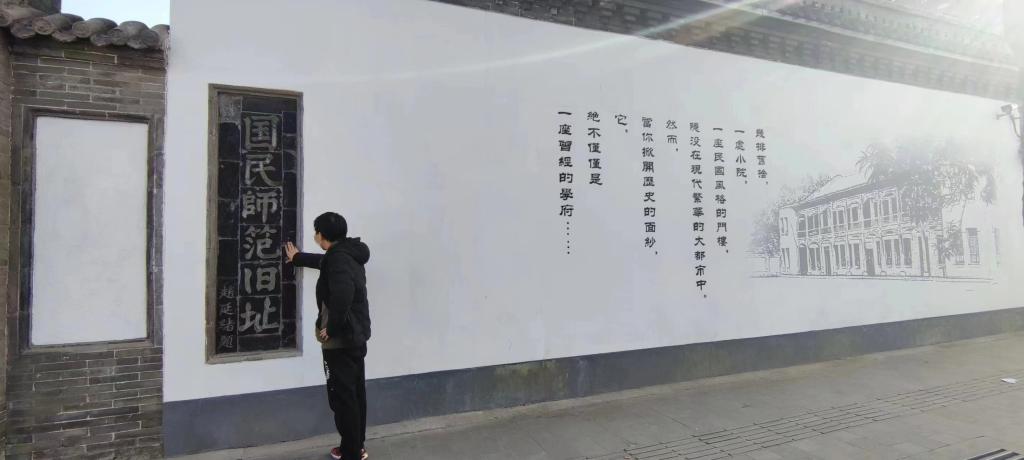 国民師范旧址
趙延緒題
幾排舊捨，
一處小院，
一座民國風格的門樓，
隱没在現代繁華的大都市中。
然而，
當你掀開歷史的面紗，
它，
絶不僅僅是
一座曾經的學府……